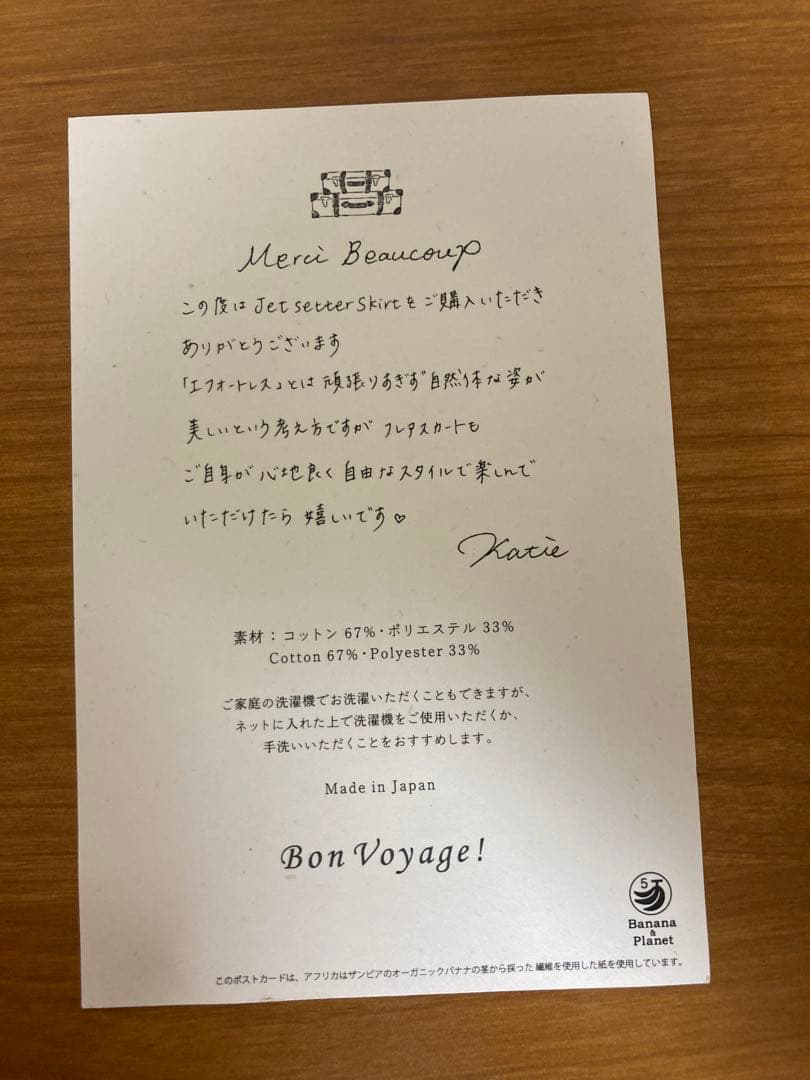 Merci Beaucoup
この度は Jetsetter Skirtをご購入いただき
ありがとうございます
「エフォートレス」とは 頑張りすぎず 自然体な姿が
美しいという考え方ですが フレアスカートも
ご自身が 心地良く 自由なスタイルで楽しんで
いただけたら 嬉しいです♡
Katie
素材：コットン 67%・ポリエステル 33%
Cotton 67%・Polyester 33%
ご家庭の洗濯機でお洗濯いただくこともできますが、
ネットに入れた上で洗濯機をご使用いただくか、
手洗いいただくことをおすすめします。
Made in Japan
Bon Voyage!
5
Banana
&
Planet
このポストカードは、アフリカはザンビアのオーガニックバナナの茎から採った 繊維を使用した紙を使用しています。